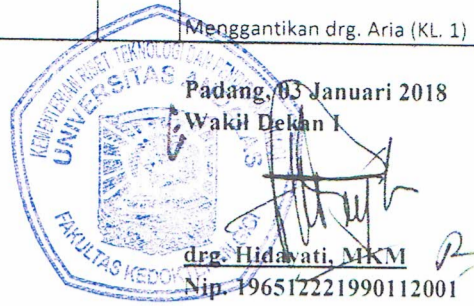 Menggantikan drg. Aria (KL. 1)
Padang, 03 Januari 2018
Wakil Dekan I
drg. Hidayati, MKM
Nip. 196512221990112001
KEMENTERIAN RISET TEKNOLOGI DAN
UNIVERSITAS ANDALAS
FAKULTAS KEDOK